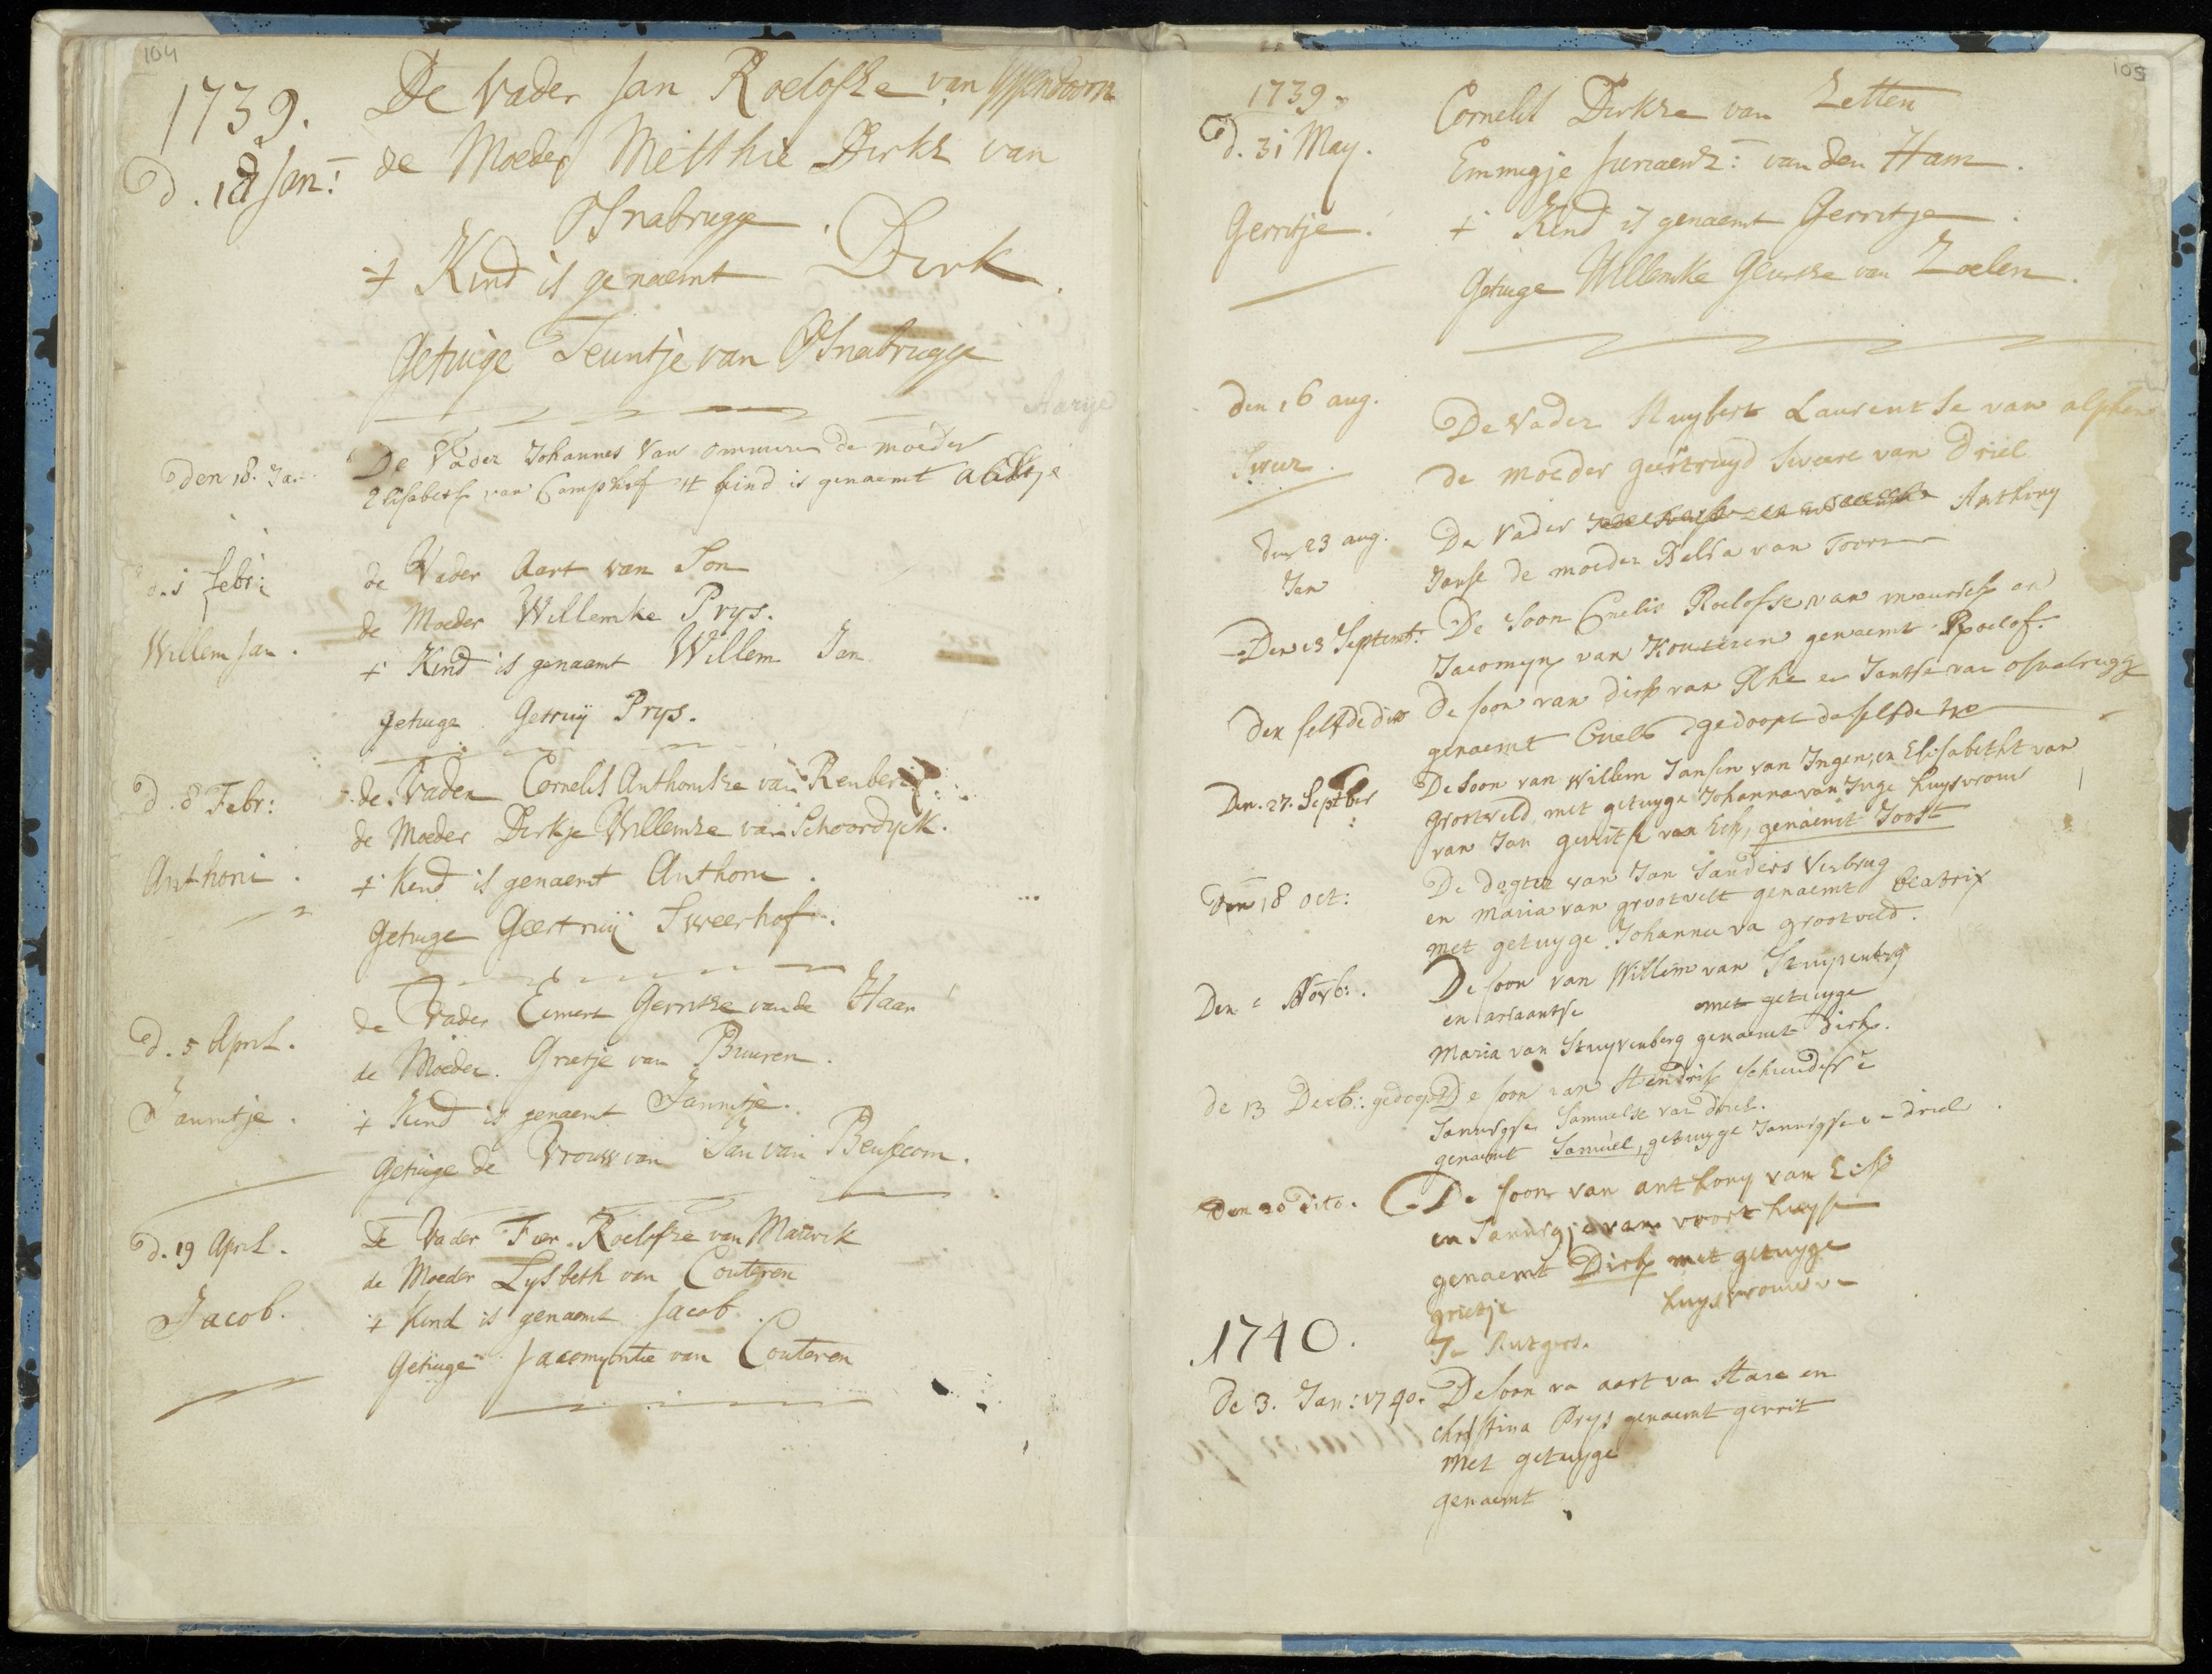 104
1739.
De Vader Jan Roelofse van Ysendoorn
d. 18 Jan:
de Moeder Metthie Dirks van
OSnabrugge.
t Kind is genaemt Dirk.
Getuige Teuntje van OSnabrugge
Den 18. Ja.
De Vader Johannes Van ommeren de moeder
Elisabeth van Camphof t kind is genaemt
d. 1 febr:
de Vader Aart van Son
de Moeder Willemke Prys.
Willem Jan.
t Kind is genaamt Willem Jan
getuige Getruij Prys.
d. 8 Febr:
de Vader Cornelis Anthonisze van
de Moeder Dirkje Willemse van Schoordyck.
Anthoni.
t Kind is genaemt Anthoni.
Getuige Geertruij Sweerhof.
de Vader Eimert Gerritze van de Haar
d. 5 April.
de Moeder. Grietje van Buuren.
Jannitje.
t Kind is genaemt Jannitje.
Getuige de Vrouw van Jan van Beusecom.
d. 19 April.
De Vader Roelofze van Maurik
de Moeder Lysbeth van Couteren
Jacob.
t Kind is genaemt Jacob.
Getuige Jacomyntie van Couteren
105
1739.
Cornelis Dirkze van Zetten
d. 31 May.
Emmigje Juriaens: van den Ham.
Gerritje.
t Kind is genaemt Gerritje.
Getuige Willemke van Zoelen.
Den 16 aug.
De Vader Huybert Laurentse van alphen
Sweer.
de moeder geertruyd Sweere van Driel
den 23 aug.
De Vader Anthony
Jan
Janse de moeder van Toorn
Den 13 Septemb:
De Soon Cnelis Roelofse van maurick en
Jacomyn van Kouteren genaemt Roelof.
Den selfde dito
De soon van dirk van Rhe en Jantse van osnabrugg
genaemt Cnelis gedoopt
Den. 27. Septber
De Soon van Willem Jansen van Ingen, en Elisabetht van
grootveld met getuyge Johanna van Inge huysvrouw
van Jan gerritse van Eck, genaemt Joost
Den 18 oct:
De dogter van Jan Sanders Verbrug
en maria van grootvelt genaemt beatrix
met getuyge Johanna va grootveld.
Den Novb:.
De soon van Willem van Stuyvenberg
en ariaantse met getuyge
Maria van Stuyvenberg genaemt dirk.
de 13 Decb: gedoopt
De soon van Hendrik
Jannigse Samuelse van driel.
genaemt Samuel, getuyge Jannigse va driel
Den 20 Dito.
De soon van anthony van Eck
en Jannigje van voorthuysen
genaemt Dirk met getuyge
grietje huysvrouw va
Ja Rutgers.
1740.
De 3. Jan: 1740.
De soon va aart va Hare en
christina Prys genaemt gerrit
Met getuyge
genaemt